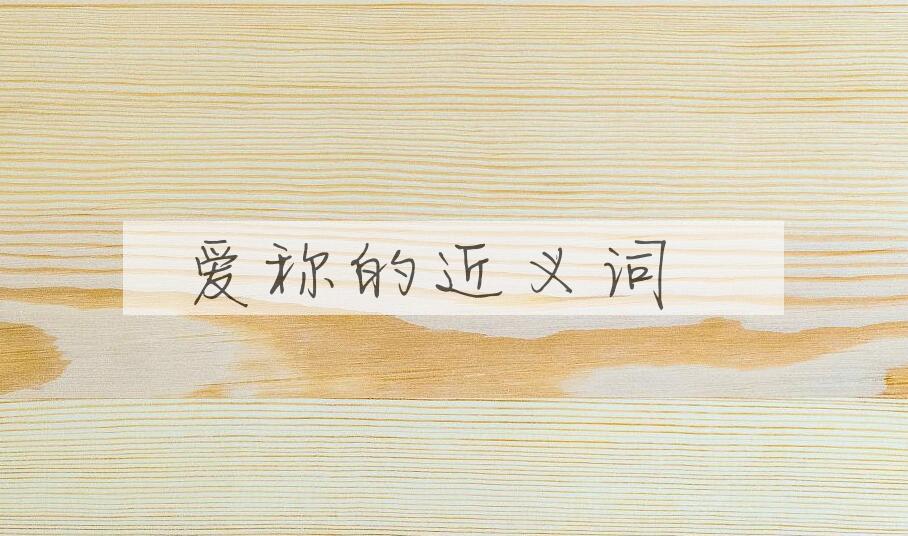 爱称的近义词